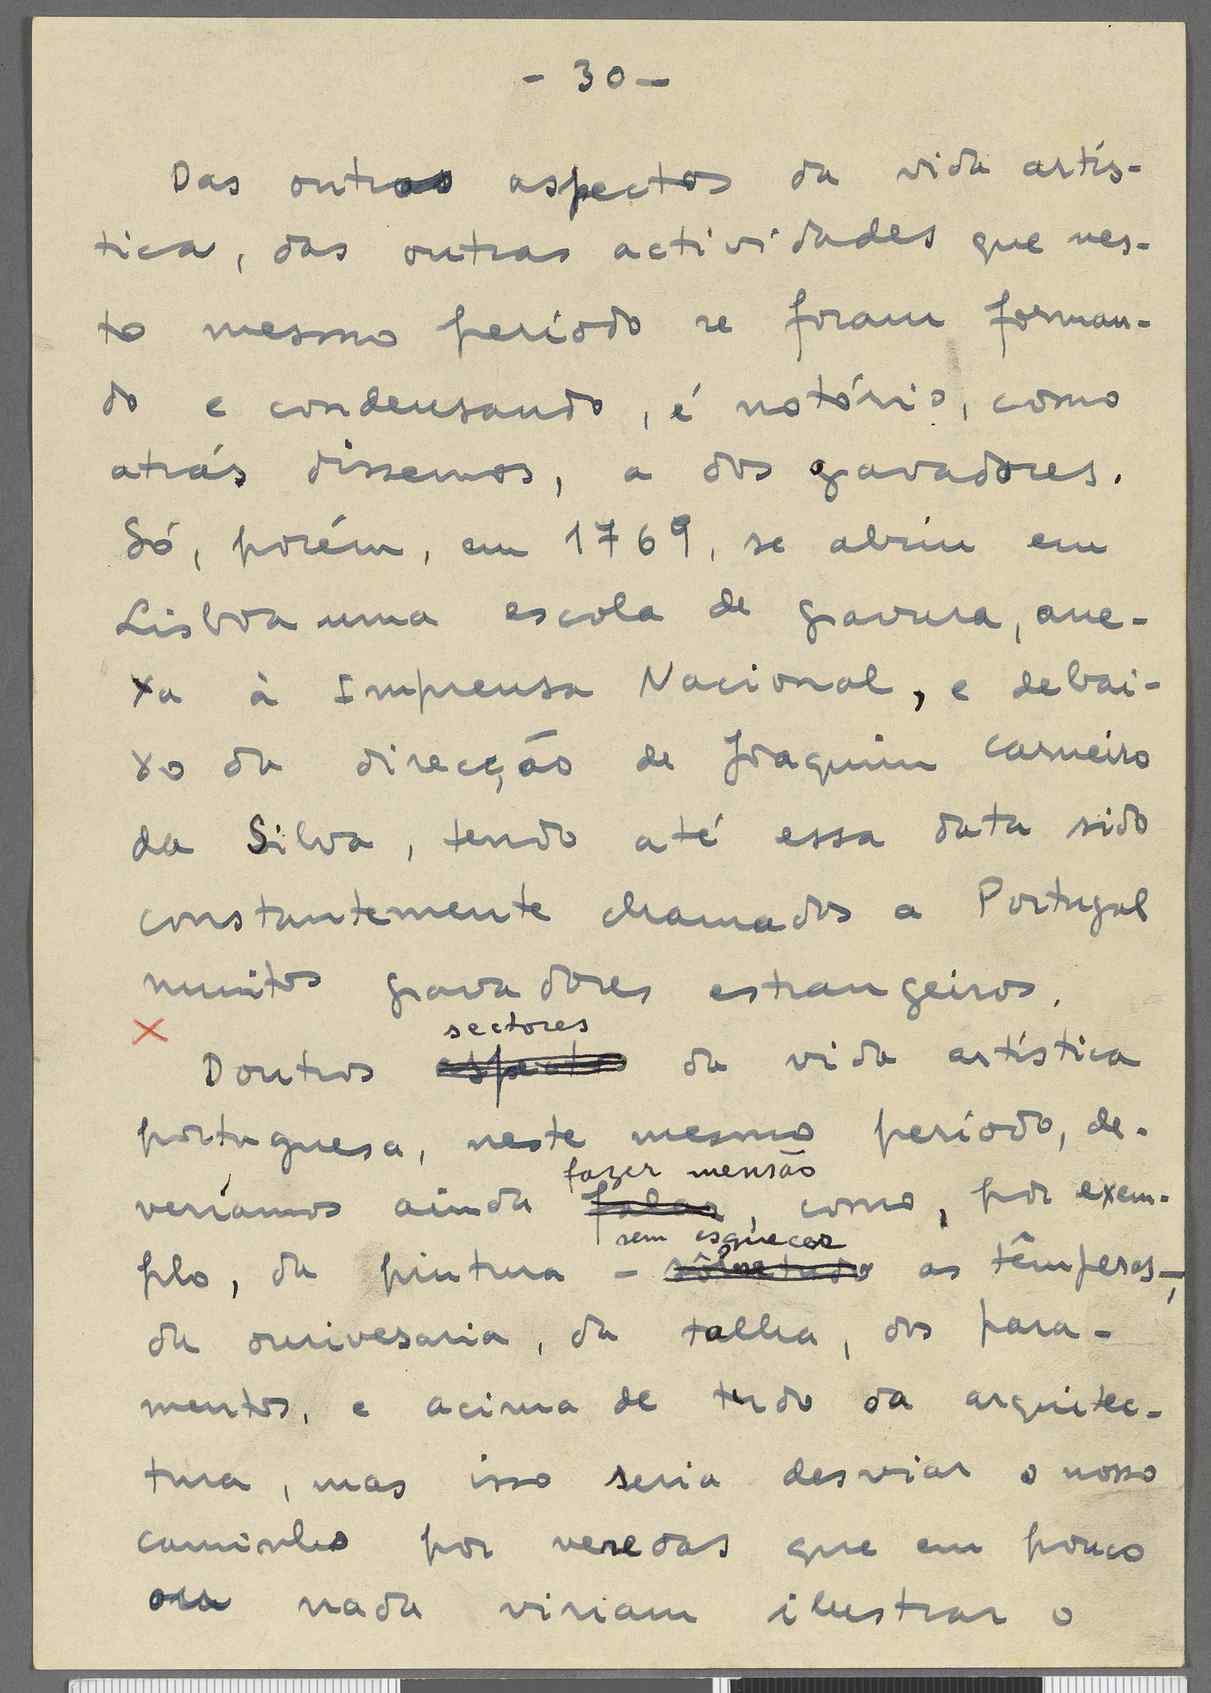 - 30 -
Das outros aspectos da vida artís-
tica, das outras actividades que nes-
te mesmo período se foram forman-
do e condensando, é notório, como
atrás dissemos, a dos gravadores.
Só, porém, em 1769, se abriu em
Lisboa uma escola de gravura, ane-
xa à Imprensa Nacional, e debai-
xo da direcção de Joaquim Carneiro
da Silva, tendo até essa data sido
constantemente chamados a Portugal
muitos gravadores estrangeiros.
sectores
Doutros aspectos da vida artística
portuguesa, neste mesmo período, de-
fazer mensão
veríamos ainda falar, como, por exem-
sem esquecer
plo, da pintura - sobretudo as têmperas -,
da ourivesaria, da talha, dos para-
mentos, e acima de tudo da arquitec-
tura, mas isso seria desviar o nosso
caminho por veredas que em pouco
ou nada viriam ilustrar o